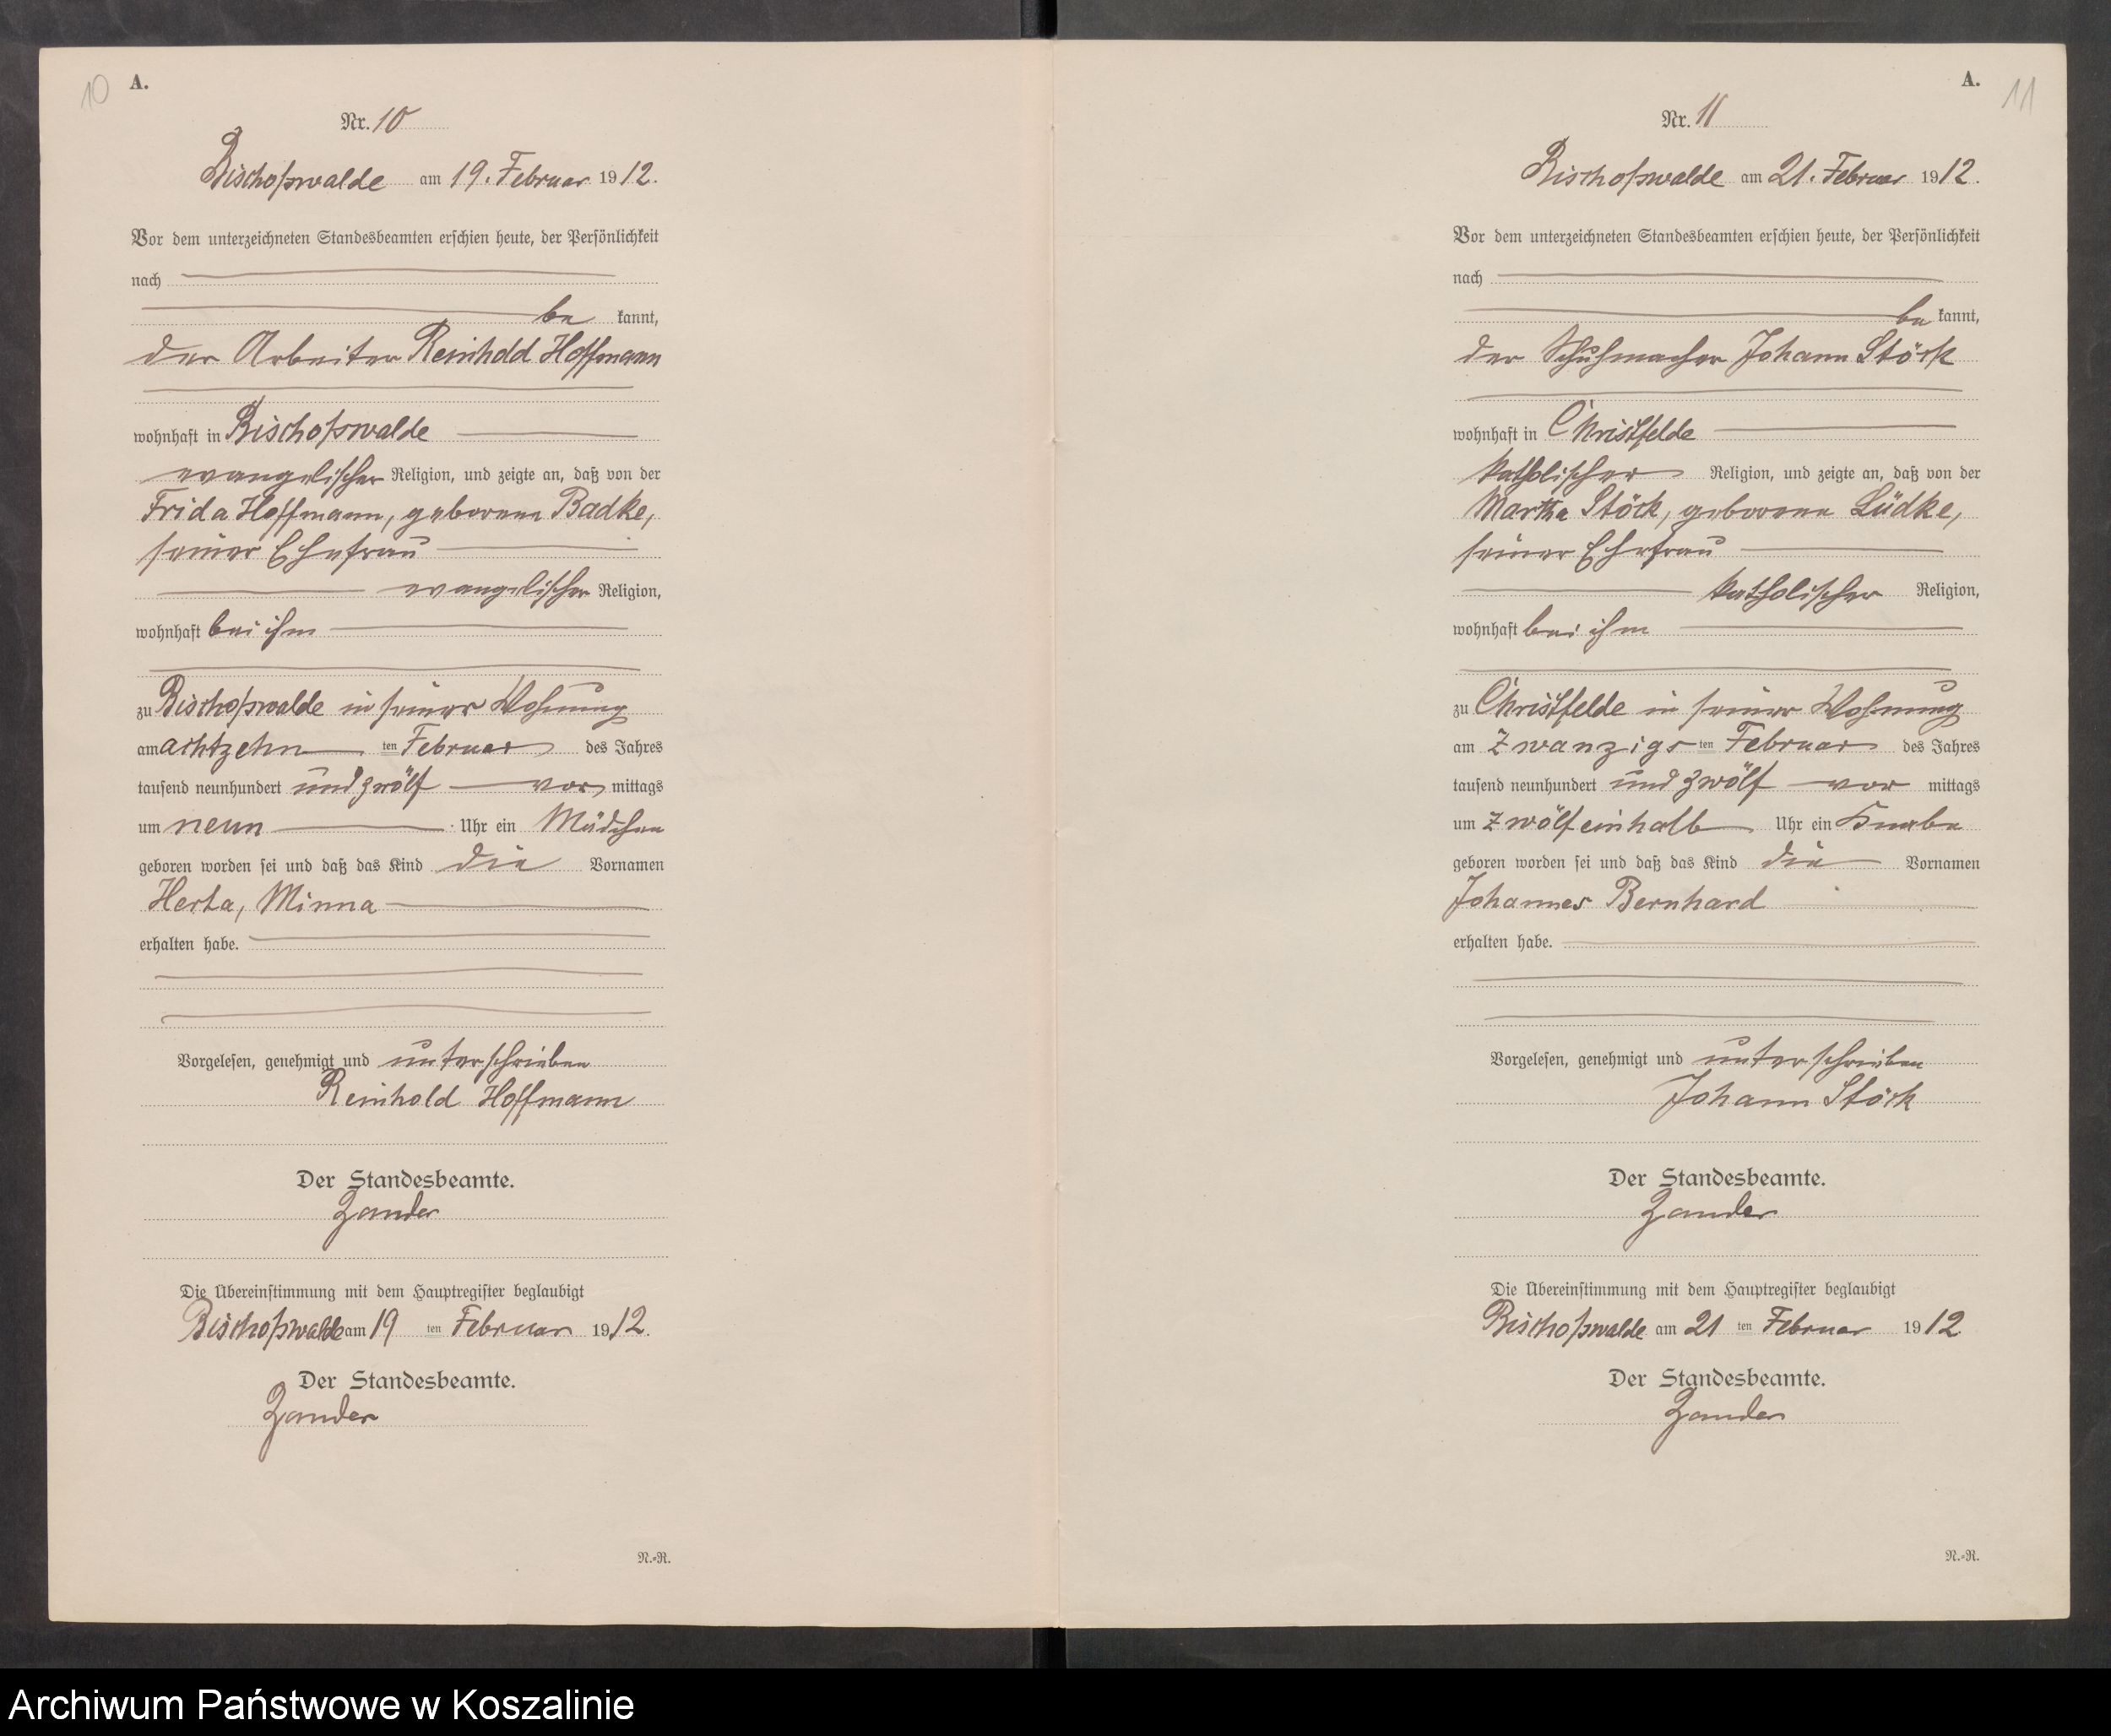 10
A.
Nr. 10
Bischofswalde am 19. Februar 1912.
Vor dem unterzeichneten Standesbeamten erschien heute, der Persönlichkeit
nach
be kannt,
der Arbeiter Reinhold Hoffmann
wohnhaft in Bischofswalde
evangelischer Religion, und zeigte an, daß von der
Frida Hoffmann, geborene Badke,
seiner Ehefrau
evangelischer Religion,
wohnhaft bei ihm
zu Bischofswalde in seiner Wohnung
am achtzehn ten Februar des Jahres
tausend neunhundert und zwölf vor mittags
um neun Uhr ein Mädchen
geboren worden sei und daß das Kind die Vornamen
Herta, Minna
erhalten habe.
Vorgelesen, genehmigt und unterschrieben
Reinhold Hoffmann
Der Standesbeamte.
Zander
Die Übereinstimmung mit dem Hauptregister beglaubigt
Bischofswalde am 19 ten Februar 1912.
Der Standesbeamte.
Zander
N.-R.
A.
11
Nr. 11
Bischofswalde am 21. Februar 1912.
Vor dem unterzeichneten Standesbeamten erschien heute, der Persönlichkeit
nach
be kannt,
der Schuhmacher Johann Störk
wohnhaft in Christfelde
katholischer Religion, und zeigte an, daß von der
Martha Störk, geborene Lüdke,
seiner Ehefrau
katholischer Religion,
wohnhaft bei ihm
zu Christfelde in seiner Wohnung
am zwanzigs ten Februar des Jahres
tausend neunhundert und zwölf vor mittags
um zwölfeinhalb Uhr ein Knabe
geboren worden sei und daß das Kind die Vornamen
Johannes Bernhard
erhalten habe.
Vorgelesen, genehmigt und unterschrieben
Johann Störk
Der Standesbeamte.
Zander
Die Übereinstimmung mit dem Hauptregister beglaubigt
Bischofswalde am 21 ten Februar 1912.
Der Standesbeamte.
Zander
N.-R.
Archiwum Państwowe w Koszalinie